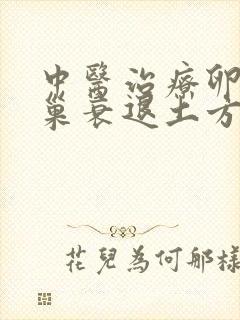 中醫治療卵
巢衰退土方
花兒為何那樣